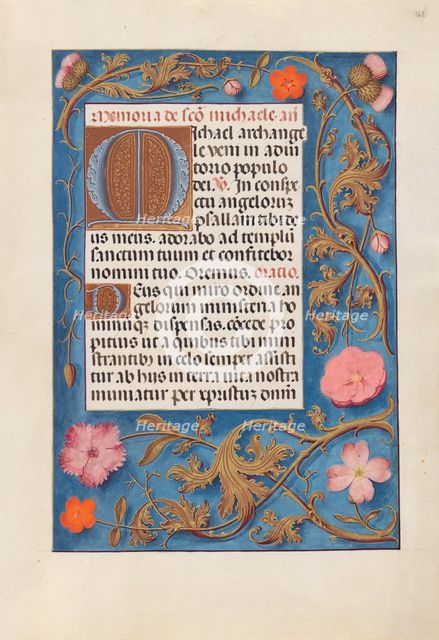 168
Memoria de sco michaele arī
Michael archange
le veni in adiu
torio populo
dei. V. In conspe
ctu angelorum
psallam tibi de
us meus. adorabo ad templū
sanctum tuum et confitebor
nomini tuo. Oremus. oratio.
Deus qui miro ordine an
gelorum ministeria ho
minūq; dispensas. cōcede pro
pitius ut a quibus tibi mini
strantibus in celo semper assistit
tur ab hiis in terra vita nostra
muniatur per xpristuz dnm